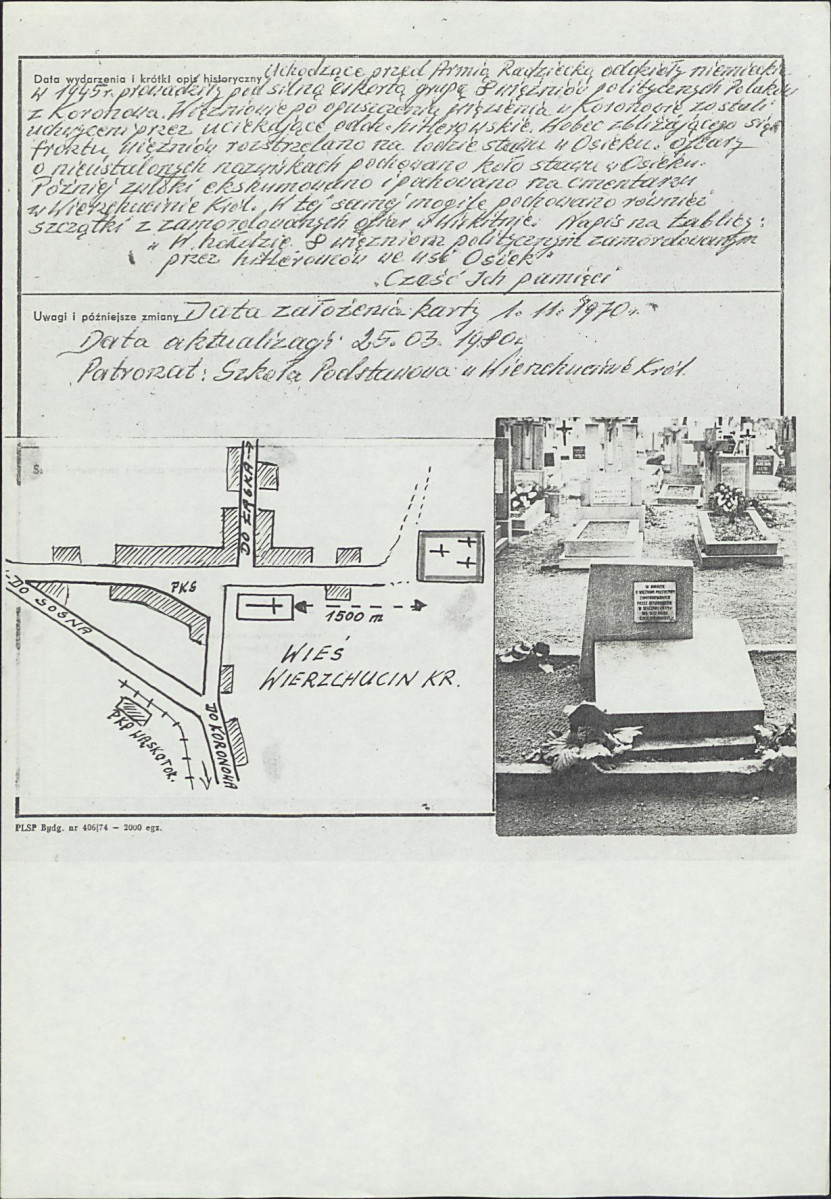 Data wydarzenia i krótki opis historyczny Uchodzące przed Armią Radziecką oddziały niemieckie
w 1945r. prowadziły pod silną eskortą grupę 8 więźniów politycznych Polaków
z Koronowa. Więźniowie po opuszczeniu więzienia w Koronowie zostali
uchwyceni przez uciekające oddz. hitlerowskie. Wobec zbliżającego się
frontu więźniów rozstrzelano na lodzie stawu w Osieku. Ofiary
o nieustalonych nazwiskach pochowano koło stawu w Osieku.
Później zwłoki ekshumowano i pochowano na cmentarzu
w Wierzchucinie Król. W tej samej mogile pochowano również
szczątki z zamordowanych ofiar w Napis na tablicy:
"W hołdzie 8 więźniom politycznym zamordowanym
przez hitlerowców we wsi Osiek"
"Cześć Ich pamięci
Uwagi i późniejsze zmiany Data założenia karty 1. 11. 1970r.
Data aktualizacji: 25. 03. 1980r.
Patronat: Szkoła Podstawowa w Wierzchucinie Król.
S.
DO
PKS
DO SOSNA
1500 m
WIEŚ
WIERZCHUCIN KR.
PKP WĄSKOTOR.
DO KORONOWA
PLSP Bydg. nr 406/74 — 2000 egz.